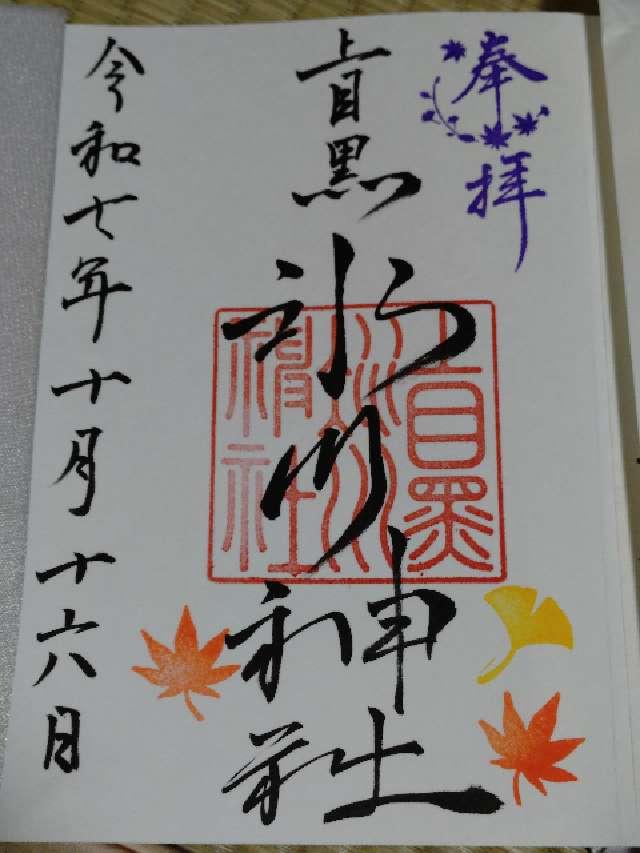 奉拝
上目黒
氷川
神社
上目黒
氷川
神社
令和七年十月十六日